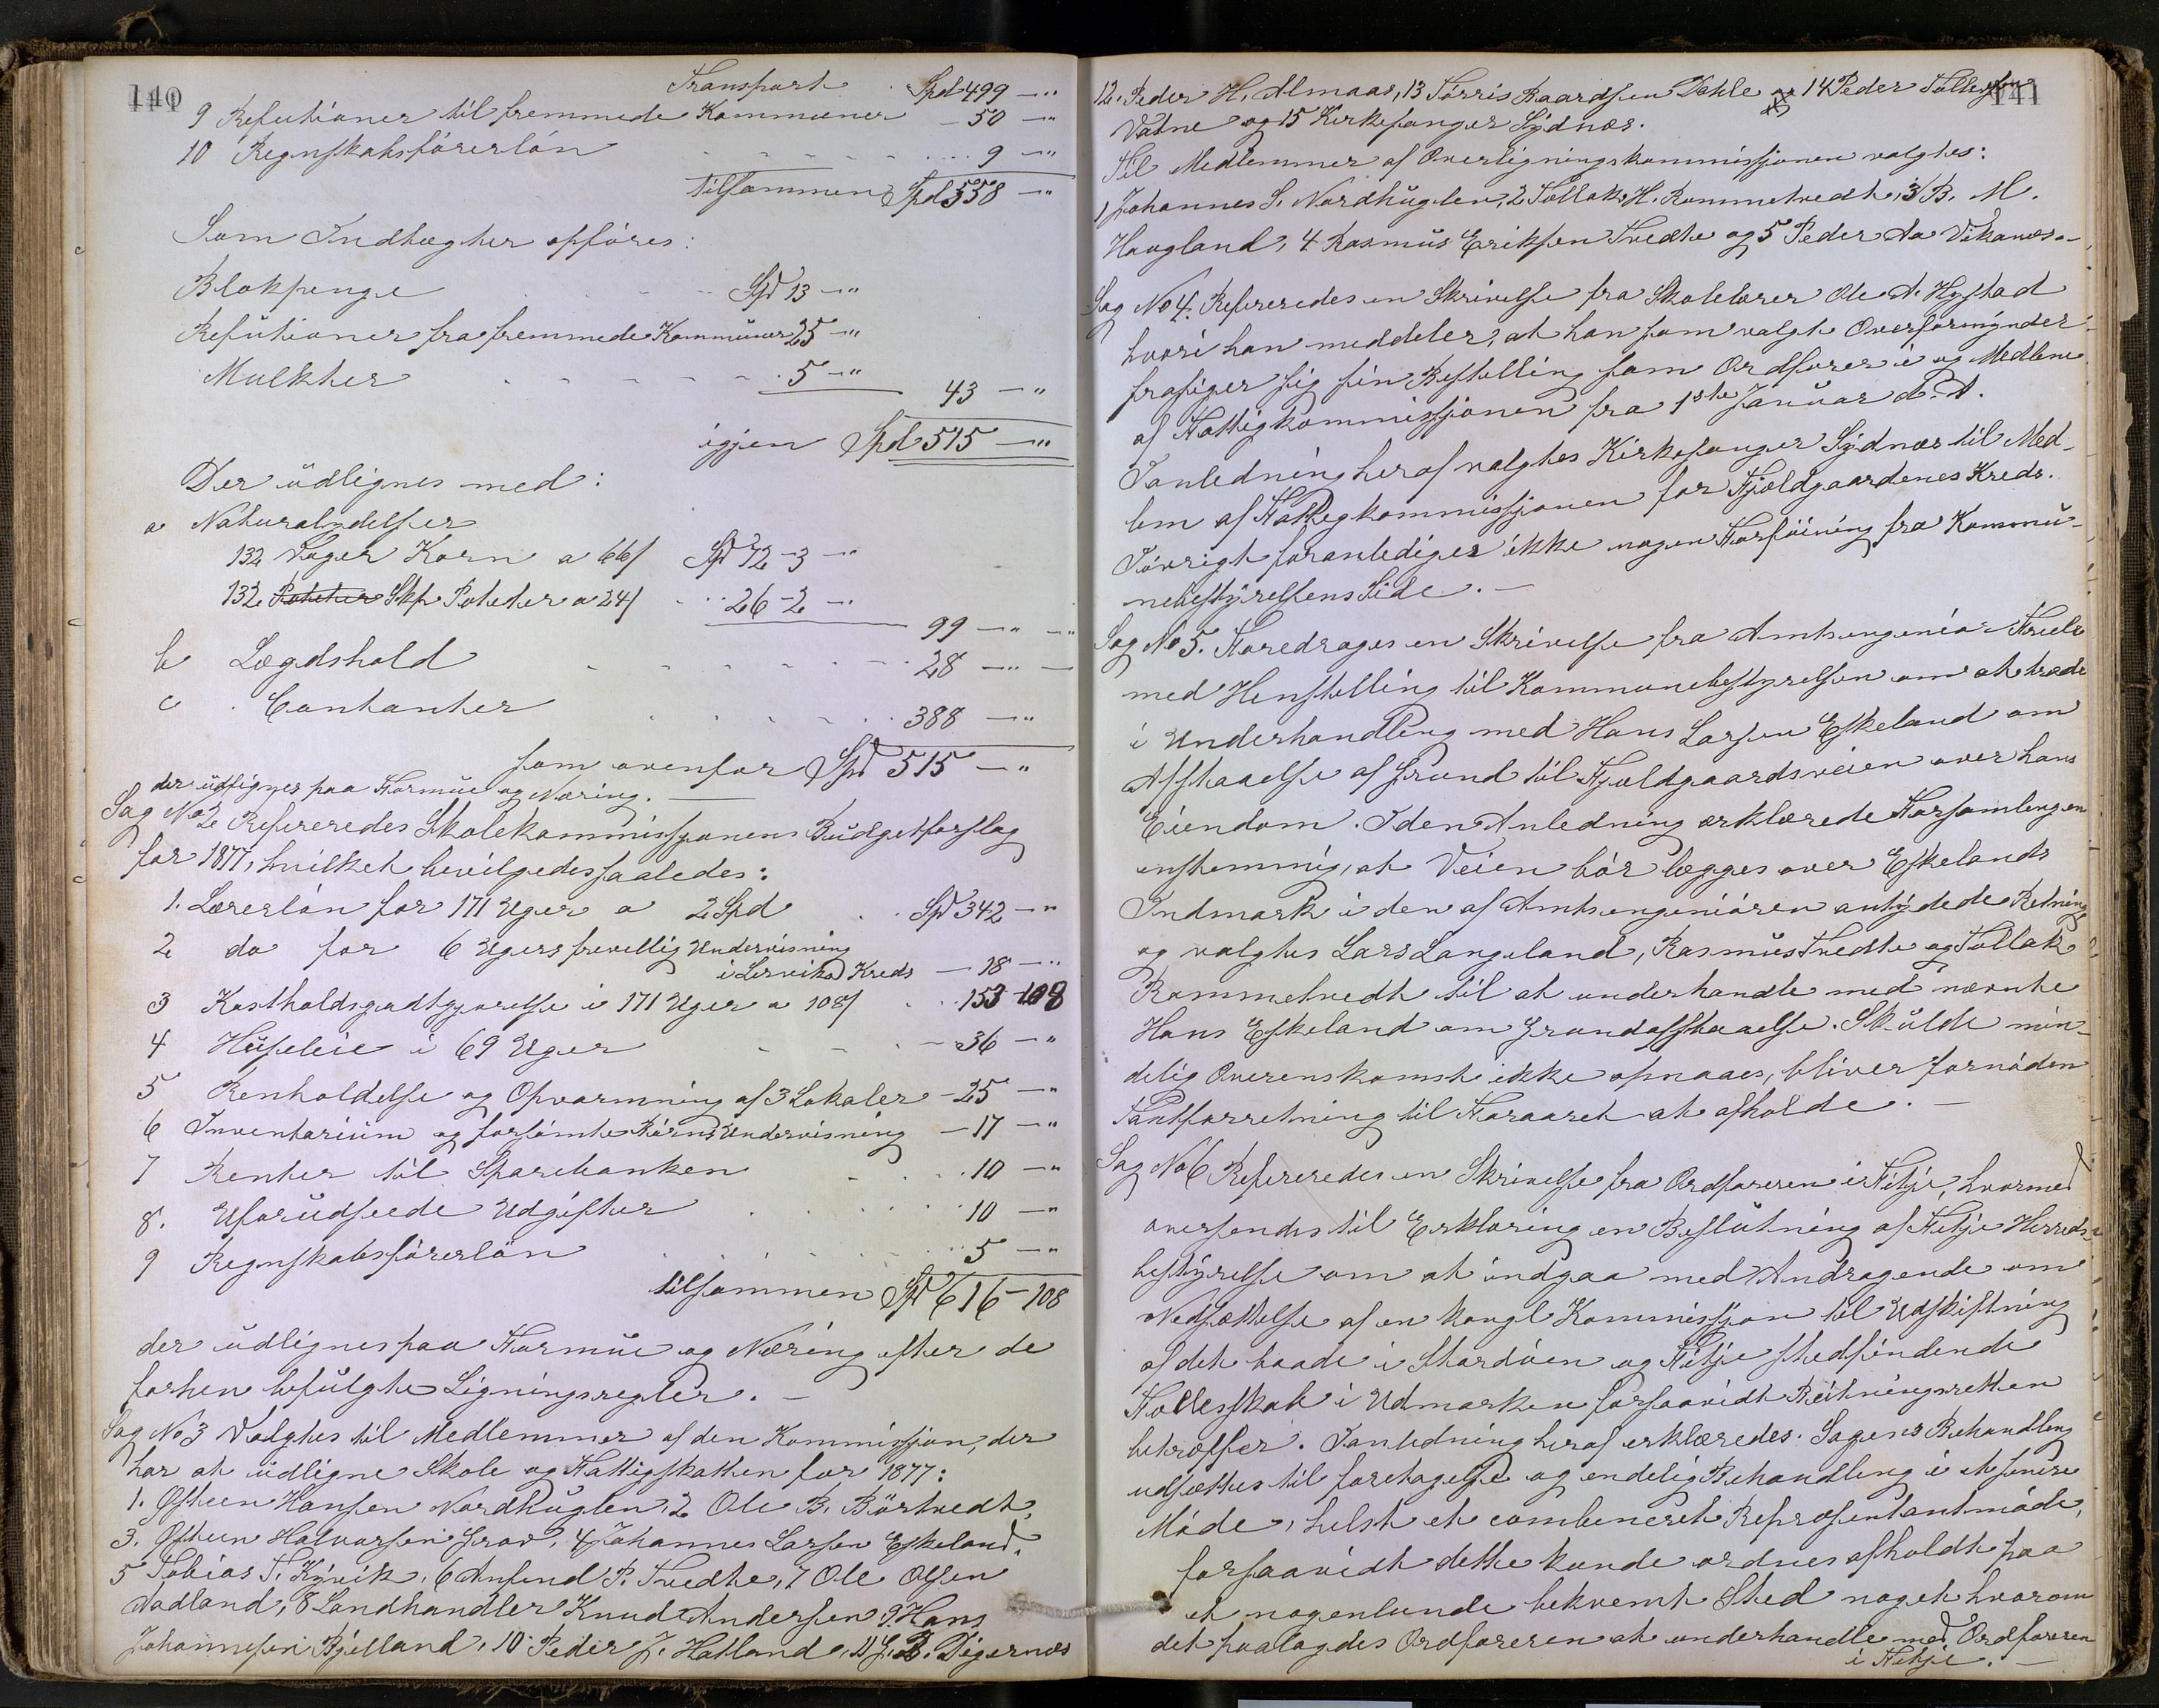 140
Transport Spd 499 — "
9 Refutioner til fremmede Kommuner — 50 — "
10 Regnskabsförerlön 9 — "
tilsammen Spd 558 — "
Som Indtægter opföres:
Blokpenge Spd 13 — "
Refutioner fra fremmede Kommuner 25 — "
Mulkter 5 — " 43 — "
igjen Spd 515 — "
Der udlignes med:
a Naturalydelser
132 Vager Korn a 66ſ Spd 72 - 3 — "
132 Poteter Skp Poteter a 24ſ 26 - 2 — "
99 — " — "
b Lægdshold 28 — " —
c Contanter 388 — "
som ovenfor Spd 515 — "
der udlignes paa Formue og Næring. —
Sag No 2 Refereredes Skolekommissjonens Budgetforslag
for 1877, hvilket bevilgedes saaledes:
1. Lærerlön for 171 Uger a 2 Spd Spd 342 — "
2 do for 6 Ugers frivillig Undervisning
i Lervik Kreds — 18 — "
3 Kostholdsgodtgjørelse i 171 Uger a 108ſ 153 - 108
4 Husleie i 69 Uger — 36 — "
5 Renholdelse og Opvarmning af 3 Lokaler — 25 — "
6 Inventarium og forsömte Börns Undervisning — 17 — "
7 Renter til Sparebanken 10 — "
8. Uforudseede Udgifter 10 — "
9 Regnskabsförerlön 5 — "
tilsammen Spd 616 - 108
der udlignes paa Formue og Næring efter de
forhen befulgte Ligningsregler. —
Sag No 3 Valgtes til Medlemmer af den Kommissjon, der
har at udligne Skole og Fattigskatten for 1877:
1. Østeen Hansen Nordhuglen, 2 Ole B. Börtvedt,
3. Østeen Halvorsen Grov, 4 Johannes Larsen Eskeland,
5 Tobias T. Kyvik, 6 Anfind P. Tvedte, 7 Ole Olsen
Aadland, 8 Landhandler Knud Andersen 9. Hans
Johannesen Bjelland, 10 Peder J. Hatland, 11 J. B. Digernæs
141
12. Peder H. Almaas, 13 Torris Baardsen Dahle og 14 Peder Tollefsen
Vatne og 15 Kirkesanger Sydnæs.
Til Medlemmer af Overligningskommissjonen valgtes:
1 Johannes S. Nordhuglen, 2 Tollak H. Rommetvedt, 3 B. M.
Hovgland, 4 Rasmus Eriksen Tvedte og 5 Peder Aa Vikanæs. —
Sag No 4. Refereredes en Skrivelse fra Skolelærer Ole A. Hystad
hvori han meddeler, at han som valgt Overformynder
frasiger sig sin Bestilling som Ordförer i og Medlem
af Fattigkommissjonen fra 1ste Januar d. A.
I anledning heraf valgtes Kirkesanger Sydnæs til Med-
lem af Fattigkommissjonen for Fjeldgaardenes Kreds.
Iövrigt foranlediges ikke nogen Forföining fra Kommu-
nebestyrelsens Side. —
Sag No 5. Foredroges en Skrivelse fra Amtsengeniör Friele
med Henstilling til Kommunebestyrelsen om at træde
i Underhandling med Hans Larsen Eskeland om
Afstaaelse af Grund til Fjeldgaardsveien over hans
Eiendom. I den Anledning erklærede Forsamlingen
enstemmig, at Veien bör lægges over Eskelands
Indmark i den af Amtsengeniören antydede Retning
og valgtes Lars Langeland, Rasmus Tvedte og Tollak
Rommetvedt til at underhandle med nævnte
Hans Eskeland om Grundafstaaelse. Skulde min-
delig Overenskomst ikke opnaaes, bliver fornöden
Taxtforretning til Foraaret at afholde. —
Sag No 6 Refereredes en Skrivelse fra Ordföreren i Fitje, hvormed
oversendes til Erklæring en Beslutning af Fitje Herreds-
bestyrelse om at indgaa med Andragende om
Nedsættelse af en kongl Kommissjon til Udskiftning
af det baade i Stordöen og Fitje stedfindende
Fællesskab i Udmarken forsaavidt Beitningsretten
betræffer. I anledning heraf erklæredes: Sagens Behandling
udsættes til foretagelse og endelig Behandling i et senere
Möde, helst et combineret Repræsentantmöde,
forsaavidt dette kunde ordnes afholdt paa
et nogenlunde bekvemt Sted noget hvorom
det paalagdes Ordföreren at underhandle med Ordföreren
i Fitje. —